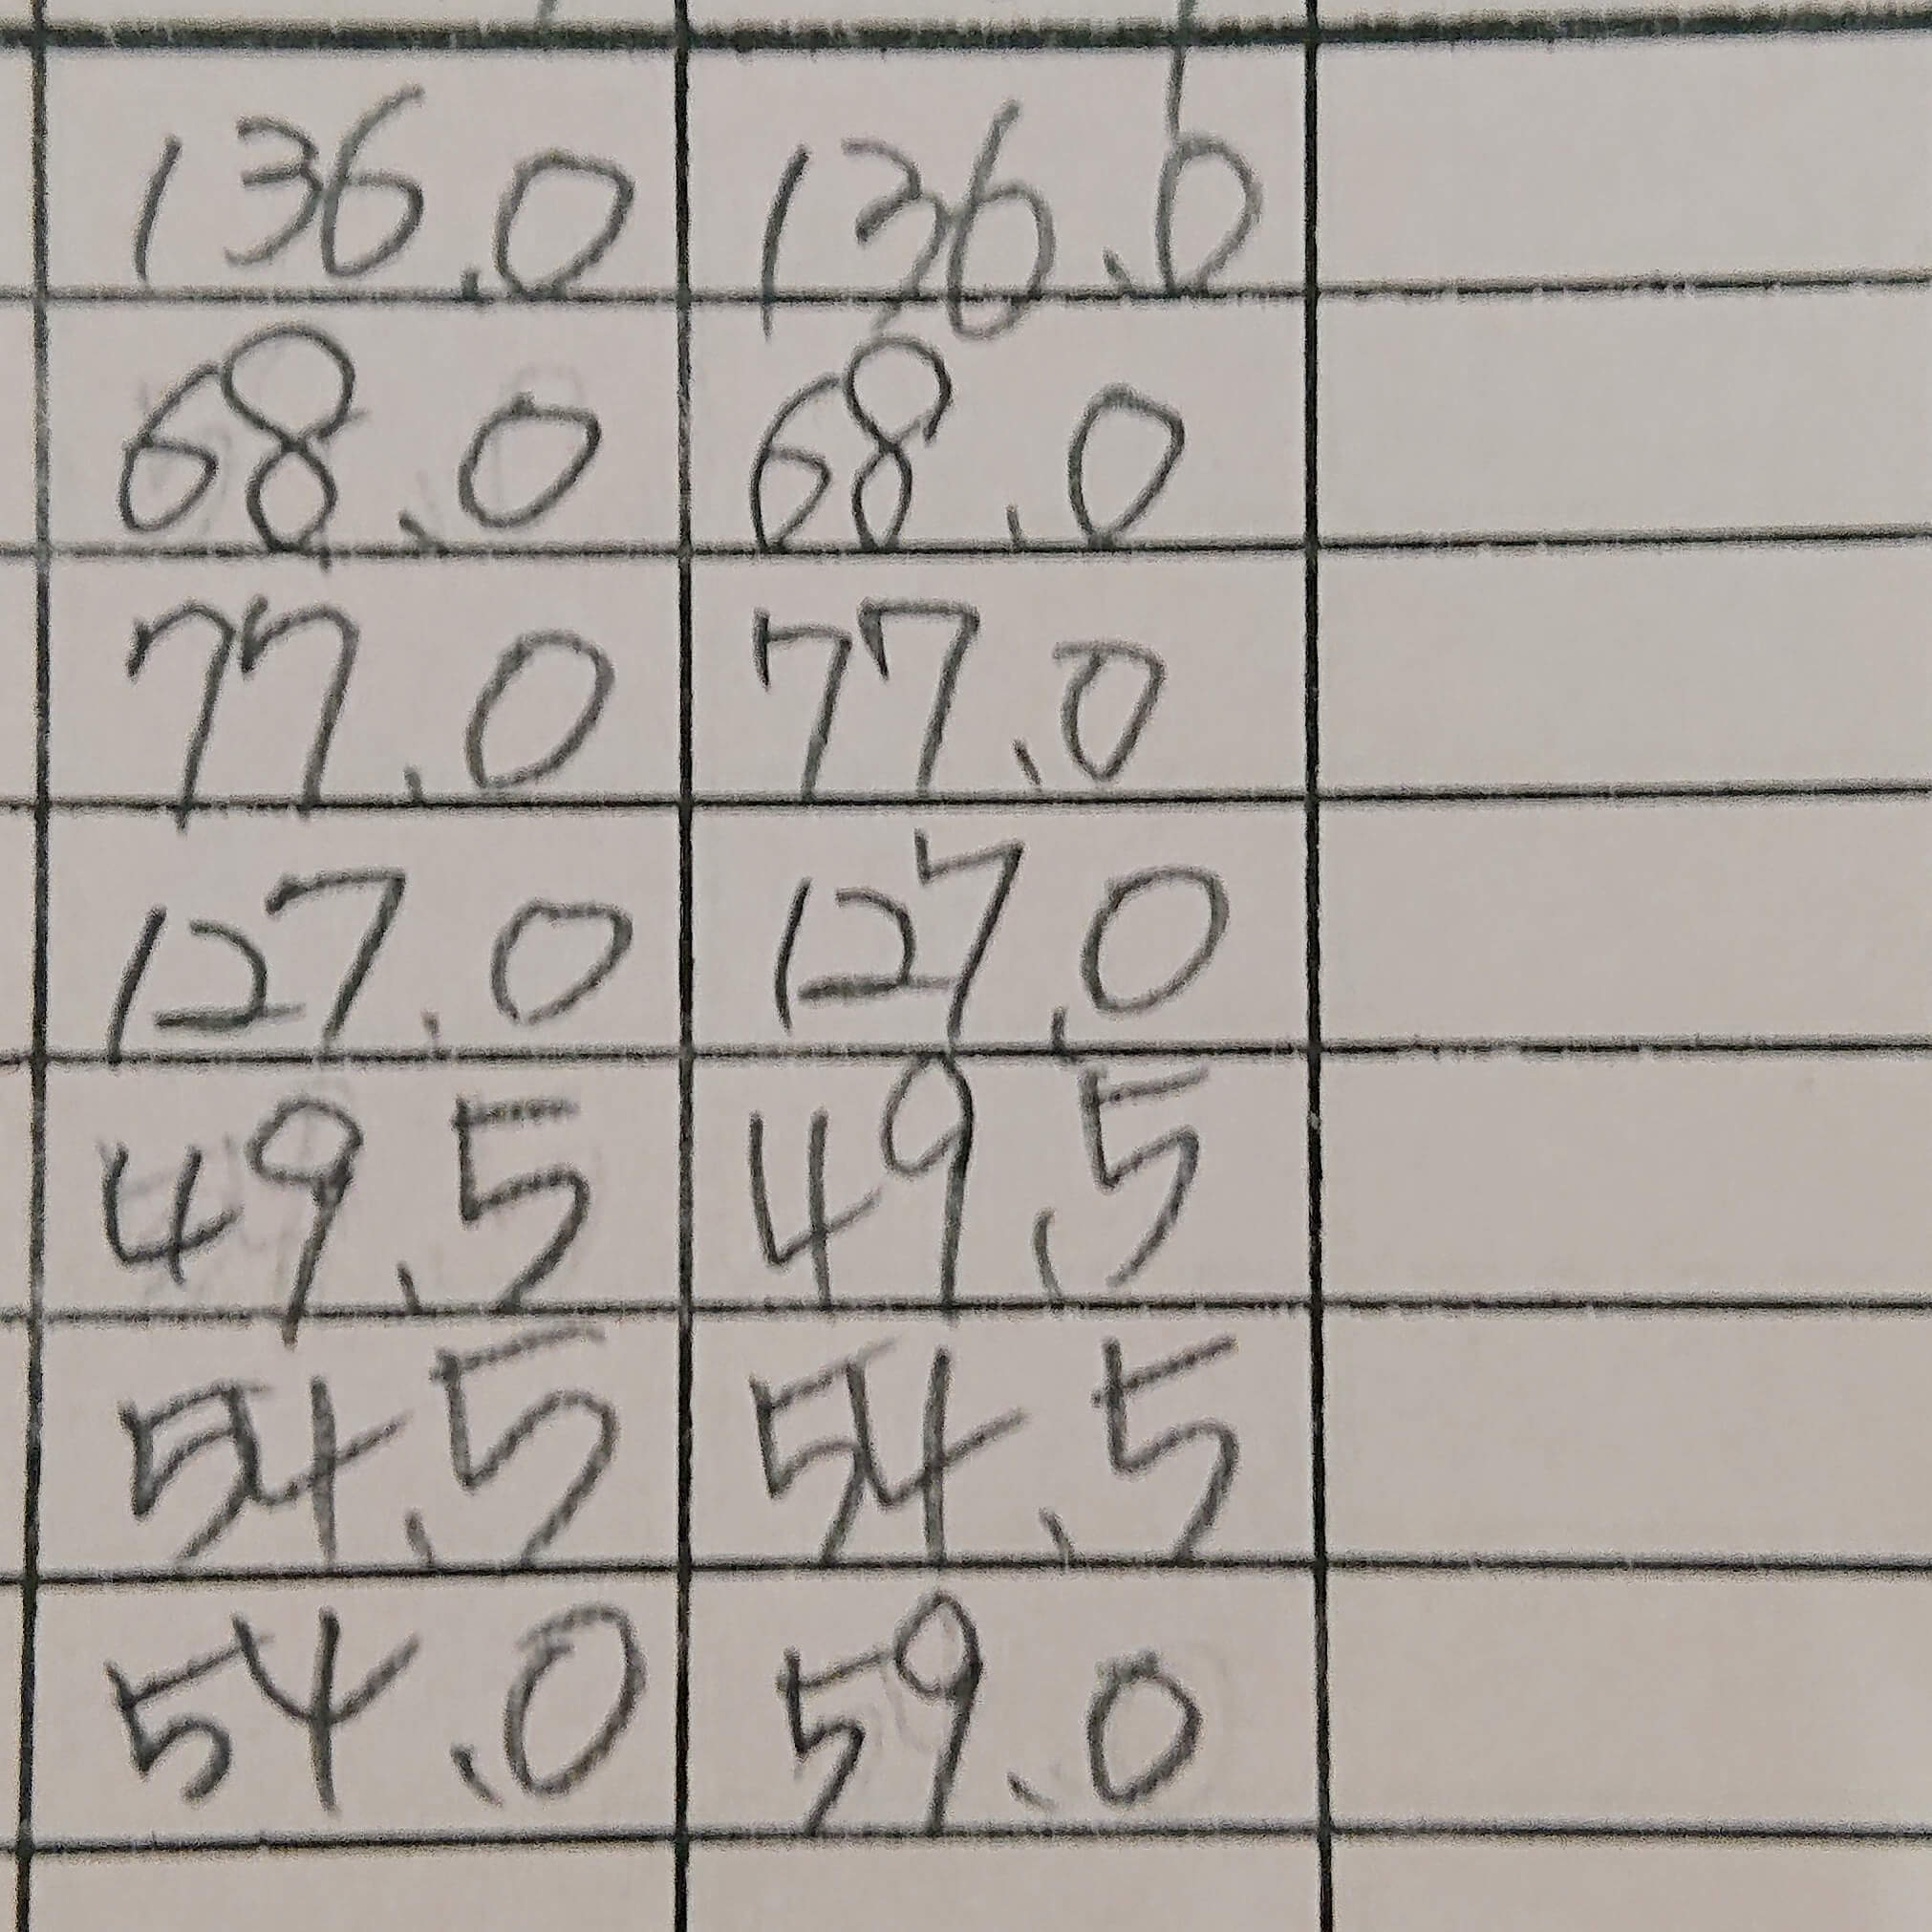 136.0 136.0
68.0 68.0
77.0 77.0
127.0 127.0
49.5 49.5
54.5 54.5
54.0 59.0